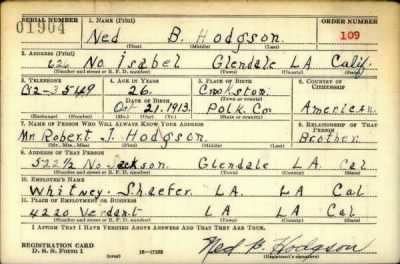 SERIAL NUMBER 1. NAME (Print) ORDER NUMBER
01904 Ned B. Hodgson 109
(First) (Middle) (Last)
2. ADDRESS (Print)
626 No. Isabel Glendale LA Calif.
(Number and street or R. F. D. number) (Town) (County) (State)
3. TELEPHONE 4. AGE IN YEARS 5. PLACE OF BIRTH 6. COUNTRY OF CITIZENSHIP
26. Crookston
DATE OF BIRTH (Town or county)
Oct 21, 1913. Polk. Co American
(Exchange) (Number) (Mo.) (Day) (Yr.) (State or country)
7. NAME OF PERSON WHO WILL ALWAYS KNOW YOUR ADDRESS 8. RELATIONSHIP OF THAT PERSON
Mr. Robert J. Hodgson Brother
(Mr., Mrs., Miss) (First) (Middle) (Last)
9. ADDRESS OF THAT PERSON
522½ No. Jackson Glendale LA. Cal
(Number and street or R. F. D. number) (Town) (County) (State)
10. EMPLOYER'S NAME
Whitney. Shaefer. LA. LA Cal
11. PLACE OF EMPLOYMENT OR BUSINESS
4220 Verdant LA LA Cal
(Number and street or R. F. D. number) (Town) (County) (State)
I AFFIRM THAT I HAVE VERIFIED ABOVE ANSWERS AND THAT THEY ARE TRUE.
REGISTRATION CARD
D. S. S. FORM 1 (over) Ned B. Hodgson
(Registrant's signature)